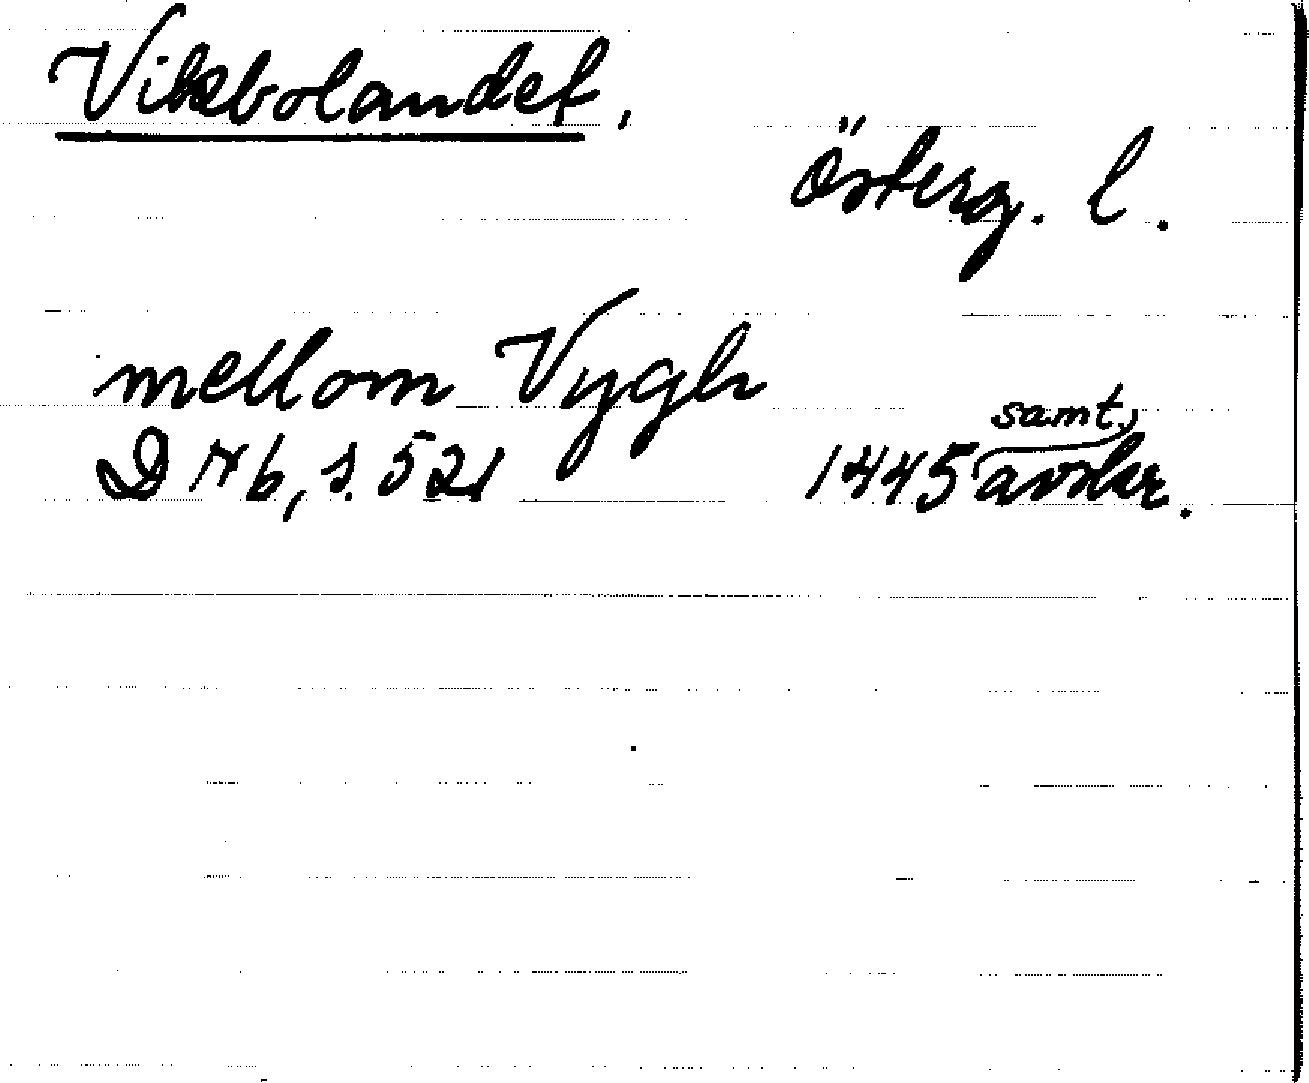 Vikbolandet,
Österg. l.
mellom Vygh
samt.
D 14b, s. 521 1445 avskr.